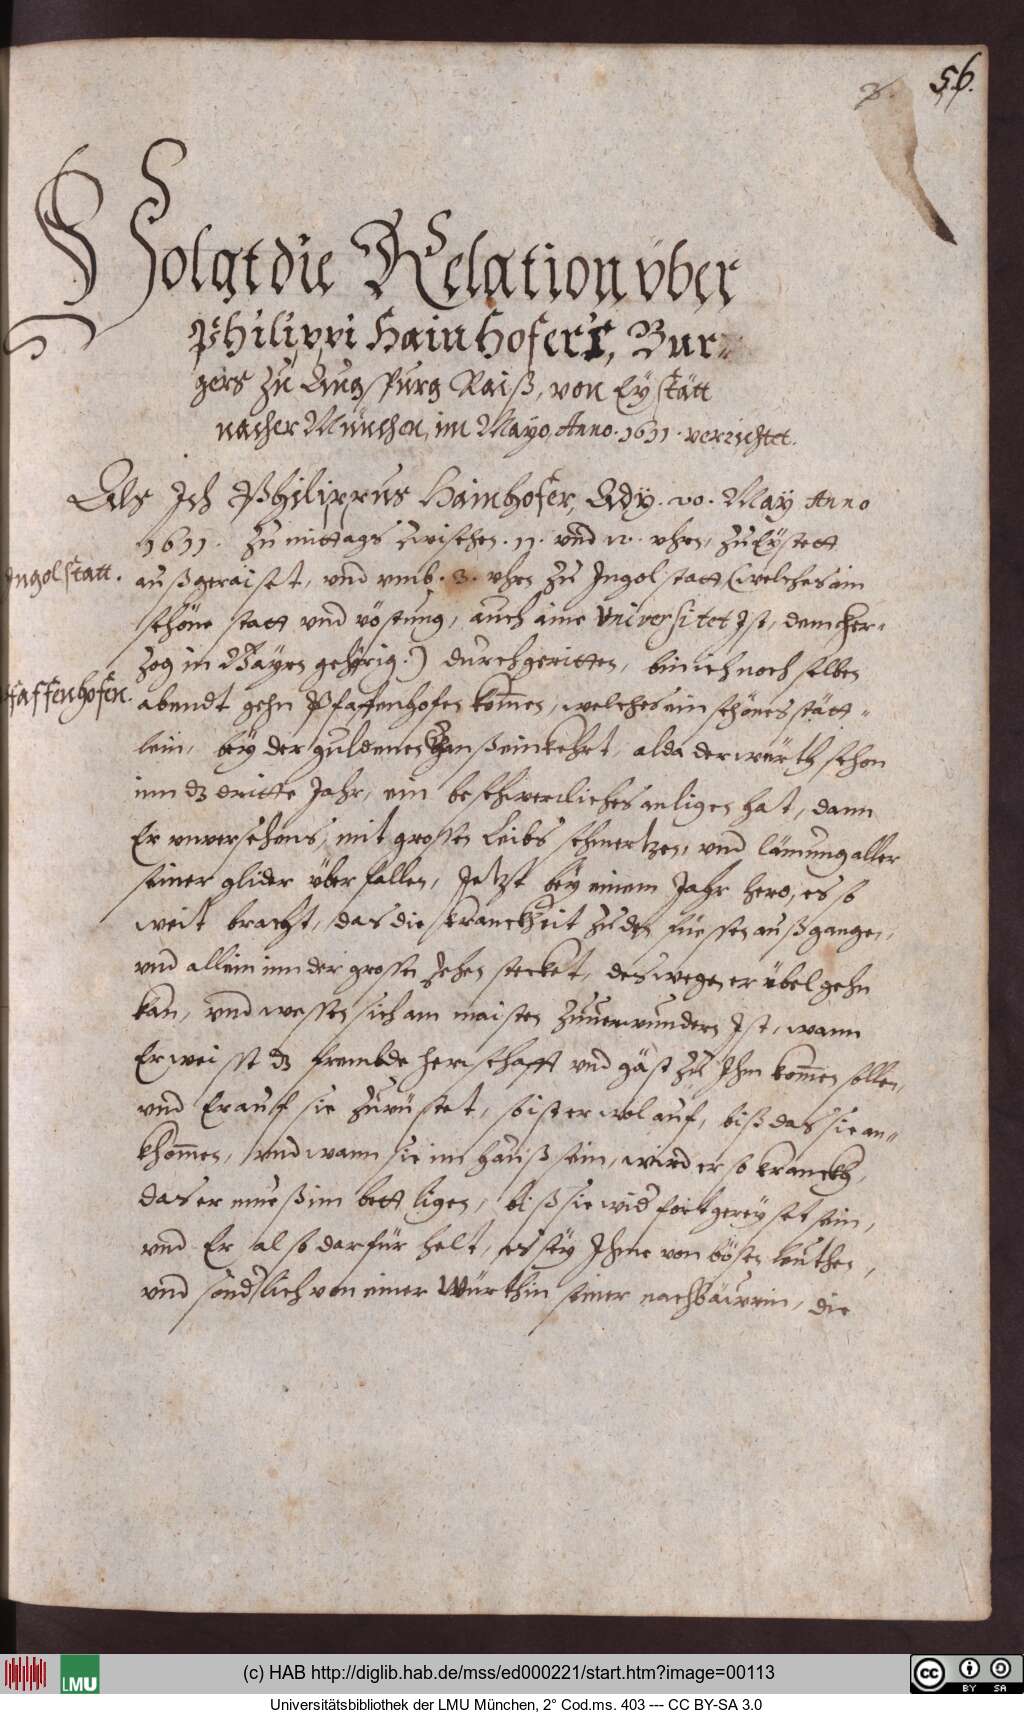 56.
Folgt die Relation vber
Philippi Hainhofers, Bur-
gers zu Augspurg Raiß, von Eystätt
nacher München, im Mayo, Anno. 1611. verrichtet.
Als Ich Philippus Hainhofer, Ady. 20. May Anno
1611. zu mittags zwischen. 11. vnd 12. vhren, zu Eystett
Ingolstatt.
außgeraiset, vnd vmb. 3. vhren zu Ingolstatt (welches ain
schöne statt vnd vöstung, auch aine Vniversitet Ist, dem her-
zog in Bayren gehörig.) durchgeritten, bin ich noch selben
Pfaffenhofen.
abendt gehn Pfaffenhofen kom̄en, welches ein schönes stätt-
lein, bey der guldenen Ganß einkehrt, alda der würth schon
inn dz dritte Jahr, ein beschwerliches anligen hat, dann
Er vnversehens, mit grossen Leibs schmertzen, vnd lämung aller
seiner glider überfallen, Jetzt bey einem Jahr hero, es so
weit bracht, das die kranckheit zu den füessen außgangen,
vnd allein inn der grossen zehen stecket, deswegen er übel gehn
kan, vnd wessen sich am maisten zuuerwundern Ist, wann
Er weisst dz frembde herrschafft vnd gäst zu Ihm kom̄en sollen,
vnd Er auf sie zurüstet, so ist er wol auf, biß das sie an-
khom̄en, vnd wann sie im hauß sein, wird er so kranckh,
das er mueß im bett ligen, biß sie wider fortgereyset sein,
vnd Er also darfür helt, es sey Ihme von bösen leuthen,
vnd sonderlich von einer Würthin seiner nachbäurin, die
(c) HAB http://diglib.hab.de/mss/ed000221/start.htm?image=00113
LMU
cc BY SA
Universitätsbibliothek der LMU München, 2° Cod.ms. 403 --- CC BY-SA 3.0